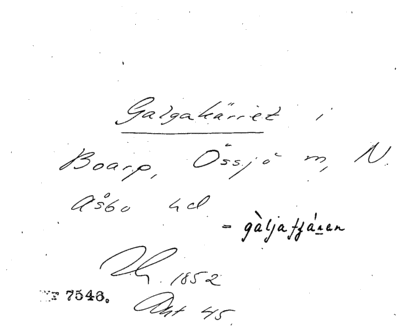 Galgakärret i
Boarp, Össjö m, N.
Åsbo hd
- gàljaɟɟáṛen
1852
7543.
Akt 45